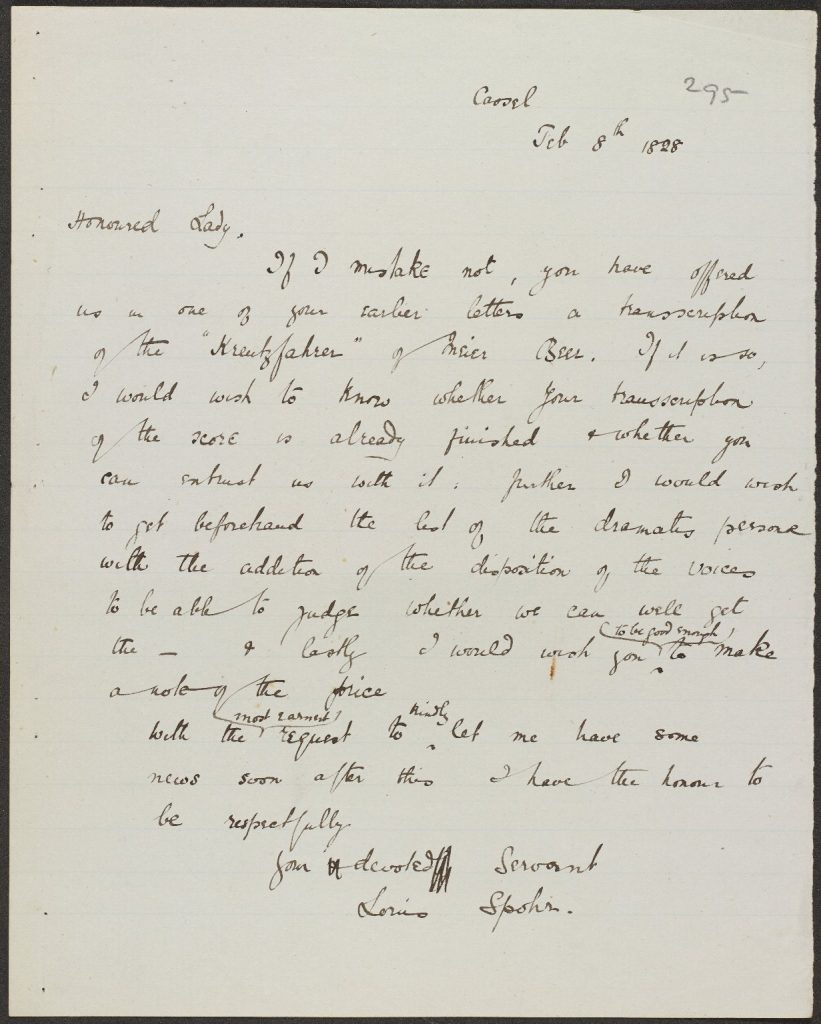 295
Cassel
Feb 8th 1828
Honoured Lady.
If I mistake not, you have offered
us in one of your earlier letters a transscription
of the "Kreutzfahrer" of Meier Beer. If it is so,
I would wish to know whether your transscription
of the score is already finished & whether you
can entrust us with it. further I would wish
to get beforehand the list of the dramatis persone
with the addition of the disposition of the voices
to be able to judge whether we can well get
(to be good enough)
the — & lastly I would wish you to make
a note of the price
(most earnest) kindly
with the request to let me have some
news soon after this I have the honour to
be respectfully
your devoted Servant
Louis Spohr.